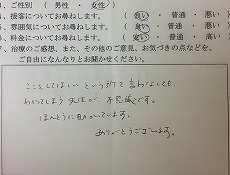 ．ご性別（ 男性 ・ 女性 ）
４．接客についてお尋ねします。（ 良い ・ 普通 ・ 悪い ）
５．雰囲気についてお尋ねします。（ 良い ・ 普通 ・ 悪い ）
６．料金についてお尋ねします。（ 安い ・ 普通 ・ 高い ）
７．治療のご感想、また、その他のご意見、お気づきの点などを、
ご自由になんなりとお聞かせください。
ここをしてほしいという所を言わなくても、
わかってしまう先生が、不思議です。
ほんとうに助かっています。
ありがとうございます。